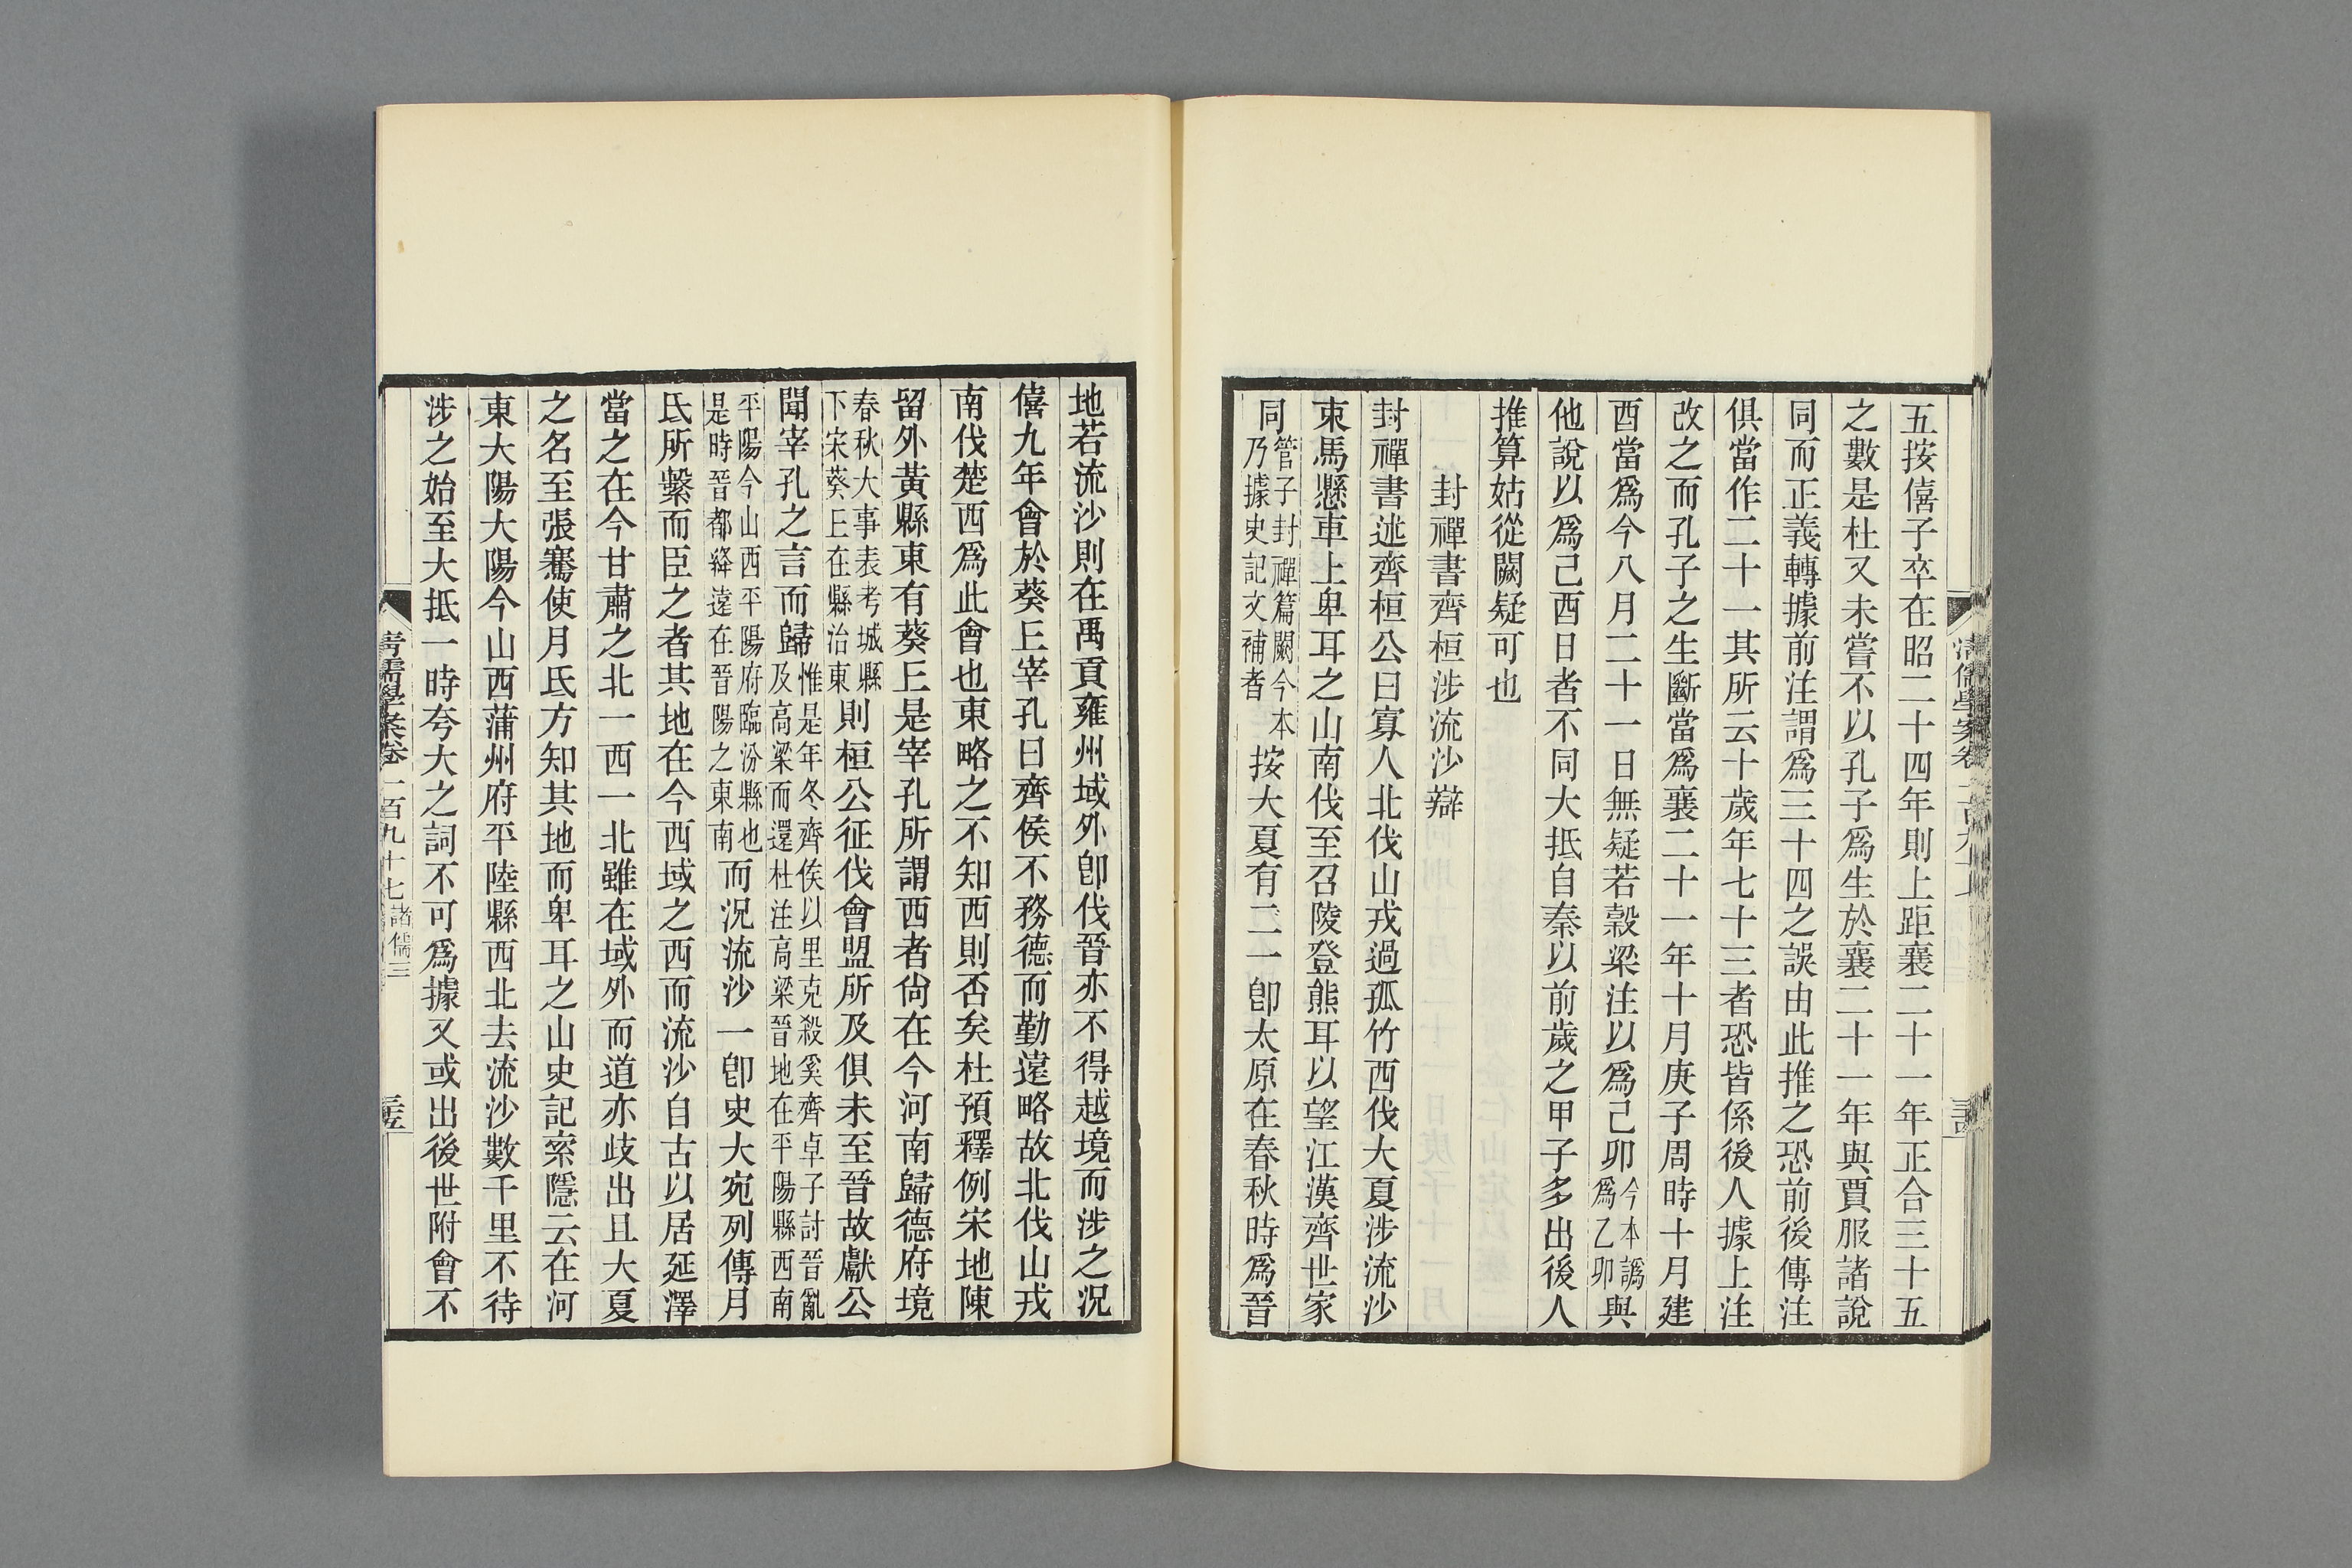 五按僖子卒在昭二十四年則上距襄二十一年正合三十五
之數是杜又未嘗不以孔子爲生於襄二十一年與賈服諸說
同而正義轉據前注謂爲三十四之誤由此推之恐前後傳注
俱當作二十一其所云十歲年七十三者恐皆係後人據上注
改之而孔子之生斷當爲襄二十一年十月庚子周時十月建
酉當爲今八月二十一日無疑若穀梁注以爲己卯今本譌爲乙卯與
他說以爲己酉日者不同大抵自秦以前歲之甲子多出後人
推算姑從闕疑可也
封禪書齊桓涉流沙辯
封禪書述齊桓公曰寡人北伐山戎過孤竹西伐大夏涉流沙
束馬懸車上卑耳之山南伐至召陵登熊耳以望江漢齊世家
同管子封禪篇闕今本乃據史記文補者按大夏有二一卽太原在春秋時爲晉
地若流沙則在禹貢雍州域外卽伐晉亦不得越境而涉之況
僖九年會於葵𠀉宰孔曰齊侯不務德而勤遠略故北伐山戎
南伐楚西爲此會也東略之不知西則否矣杜預釋例宋地陳
留外黃縣東有葵𠀉是宰孔所謂西者尙在今河南歸德府境
春秋大事表考城縣下宋葵𠀉在縣治東則桓公征伐會盟所及俱未至晉故獻公
聞宰孔之言而歸惟是年冬齊侯以里克殺奚齊卓子討晉亂及高梁而還杜注高梁晉地在平陽縣西南
平陽今山西平陽府臨汾縣也是時晉都絳遠在晉陽之東南而況流沙一卽史大宛列傳月
氏所繫而臣之者其地在今西域之西而流沙自古以居延澤
當之在今甘肅之北一西一北雖在域外而道亦歧出且大夏
之名至張騫使月氏方知其地而卑耳之山史記索隱云在河
東大陽大陽今山西蒲州府平陸縣西北去流沙數千里不待
涉之始至大抵一時夸大之詞不可爲據又或出後世附會不
清儒學案卷一百九十七 諸儒三
三五